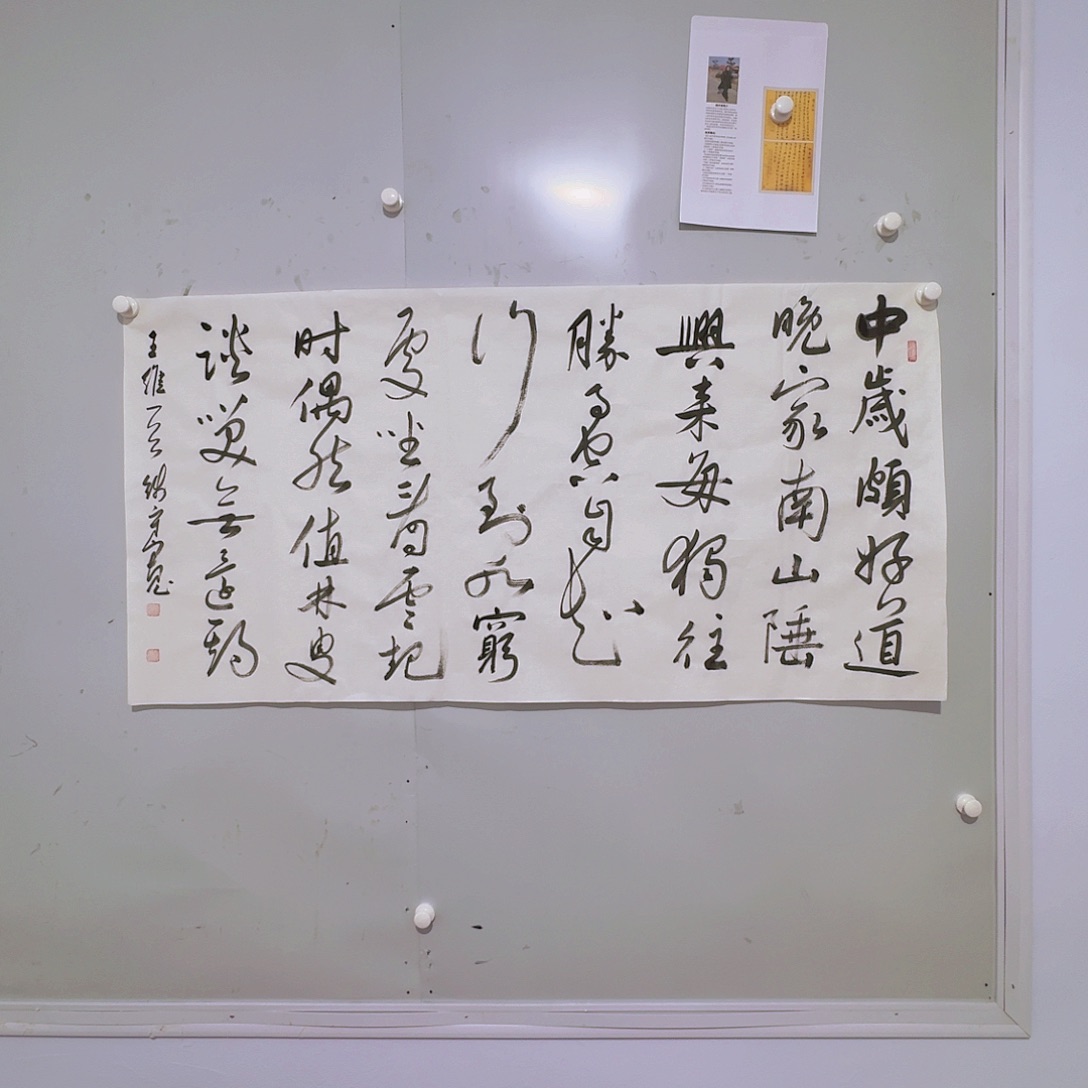 中歲頗好道
晚家南山陲
興来每獨往
勝事空自知
行到水窮
處坐看雲起
时偶然值林叟
談笑無還期
王維